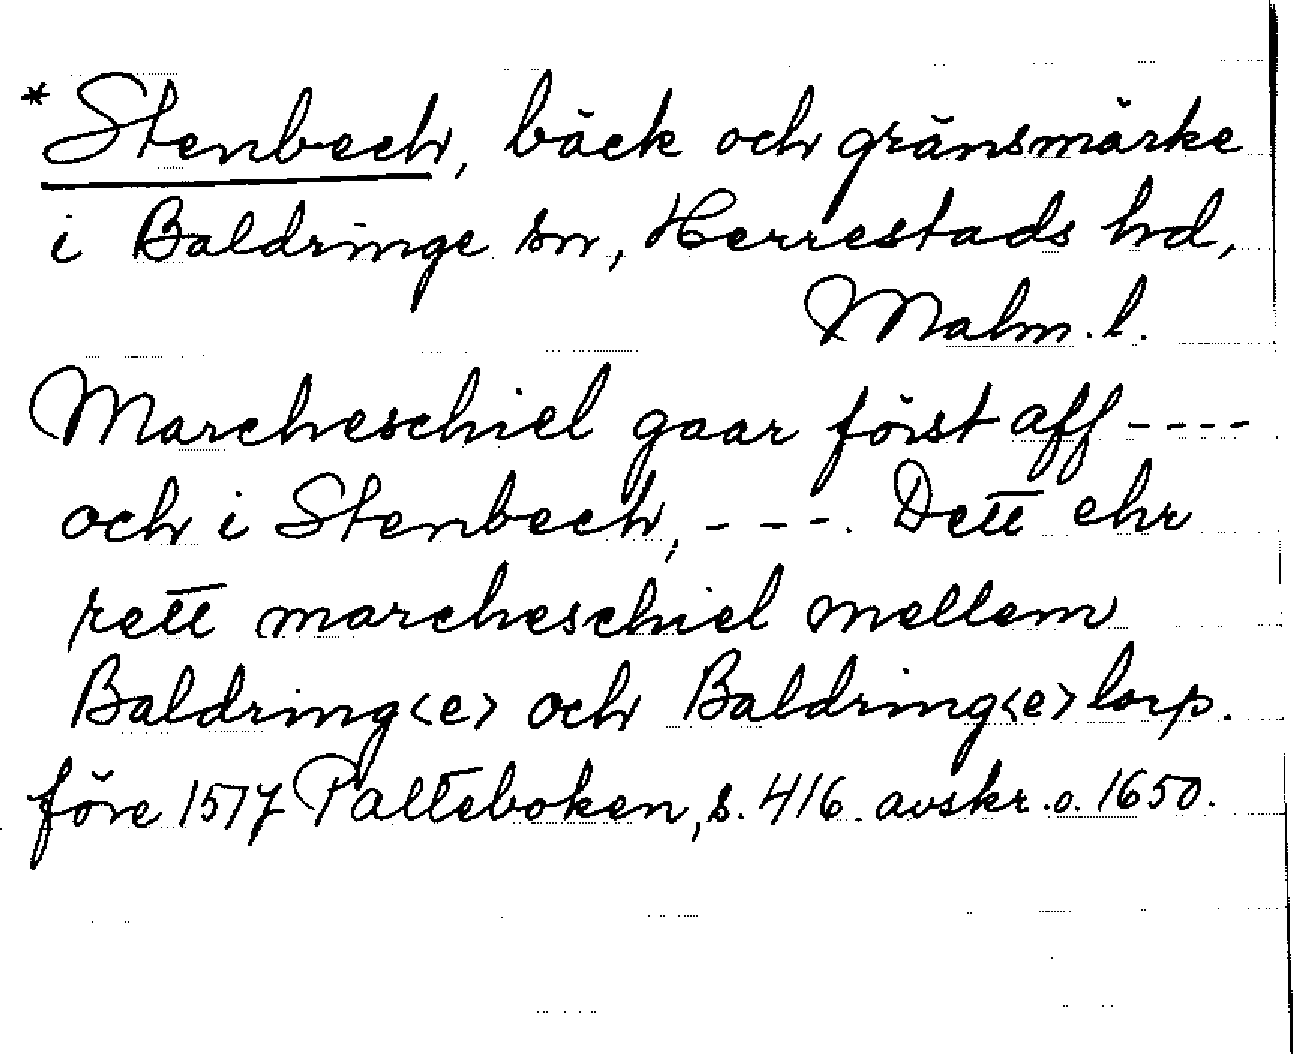 *Stenbech, bäck och gränsmärke
i Baldringe sn, Herrestads hd,
Malm. l.
Marcheschiel gaar först aff ----
och i Stenbech, ---. Dett ehr
rett marcheschiel mellem
Baldring<e> och Baldring<e>torp.
före 1517 Palteboken, s. 416. avskr. o. 1650.